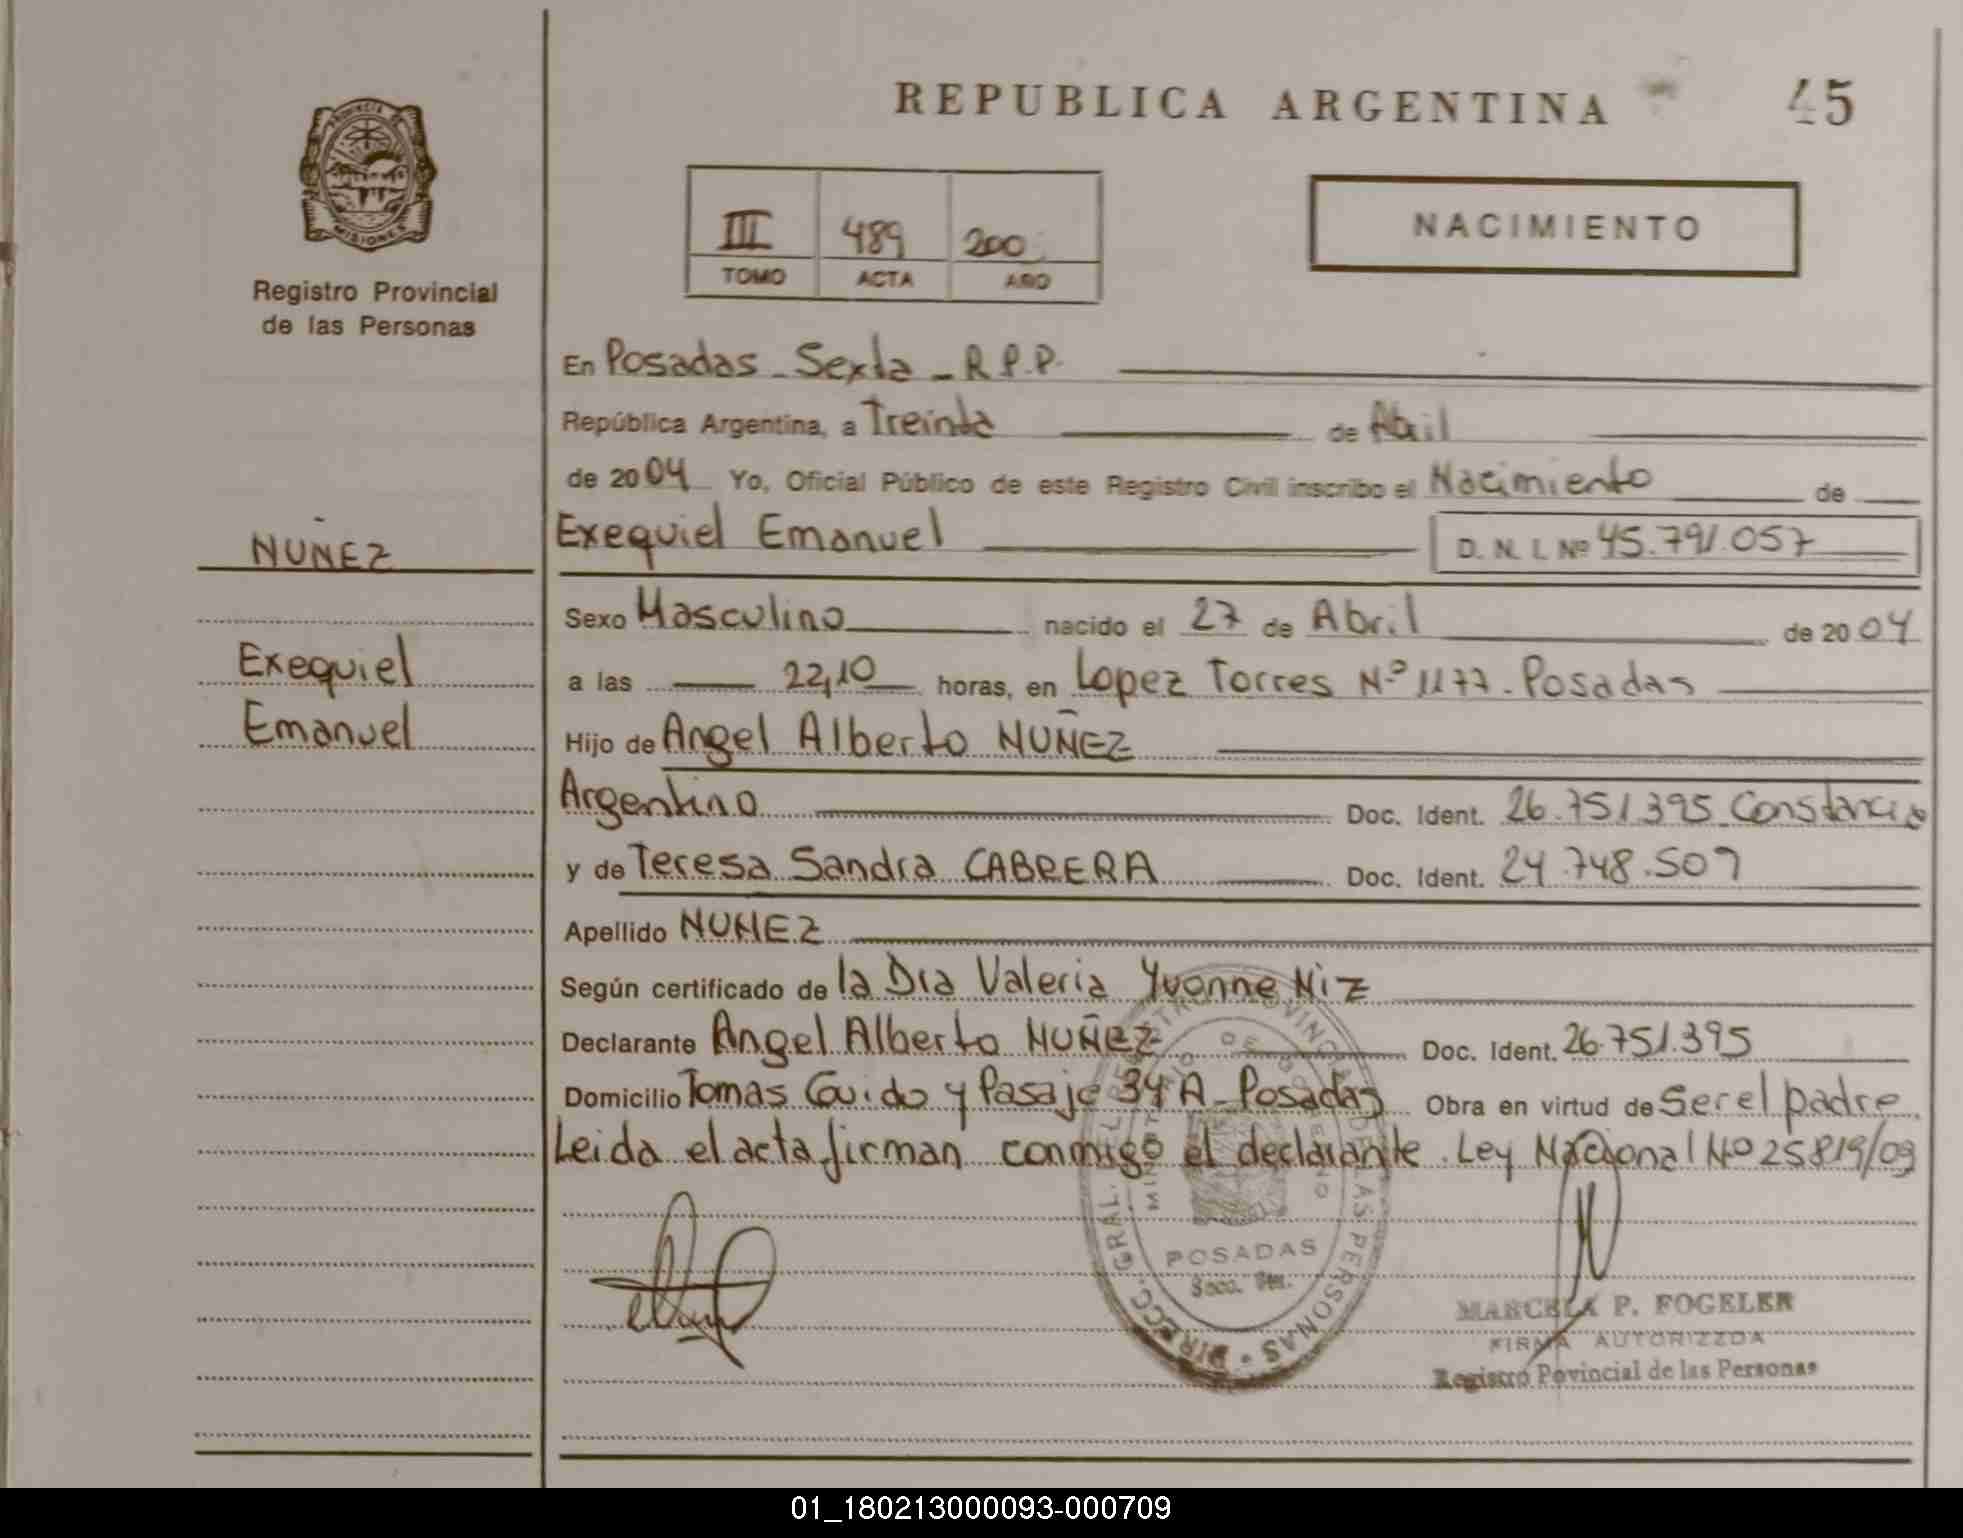 REPUBLICA ARGENTINA
45
PROVINCIA DE
MISIONES
Registro Provincial
de las Personas
III 489 200
TOMO ACTA AÑO
NACIMIENTO
En Posadas - Sexta - R.P.P.
República Argentina, a Treinta de Abril
de 2004 Yo, Oficial Público de este Registro Civil inscribo el Nacimiento de
NUÑEZ
Exequiel Emanuel D. N. I. Nº 45.791.057
Sexo Masculino nacido el 27 de Abril de 2004
Exequiel
a las 22,10 horas, en Lopez Torres Nº 1177 - Posadas
Emanuel
Hijo de Angel Alberto NUÑEZ
Argentino Doc. Ident. 26.751.395 Constancia
y de Teresa Sandra CABRERA Doc. Ident. 24.748.509
Apellido NUÑEZ
Según certificado de la Dra Valeria Yvonne Niz
Declarante Angel Alberto NUÑEZ Doc. Ident. 26.751.395
Domicilio Tomas Guido y Pasaje 34 A - Posadas Obra en virtud de Ser el padre
Leida el acta firman conmigo el declarante. Ley Nacional Nº 25819/03
DIRECC. GRAL. DEL REGISTRO PROVINCIAL DE LAS PERSONAS
MINISTERIO DE GOBIERNO
POSADAS
MARCELA P. FOGELER
FIRMA AUTORIZZDA
Registro Povincial de las Personas
01_180213000093-000709